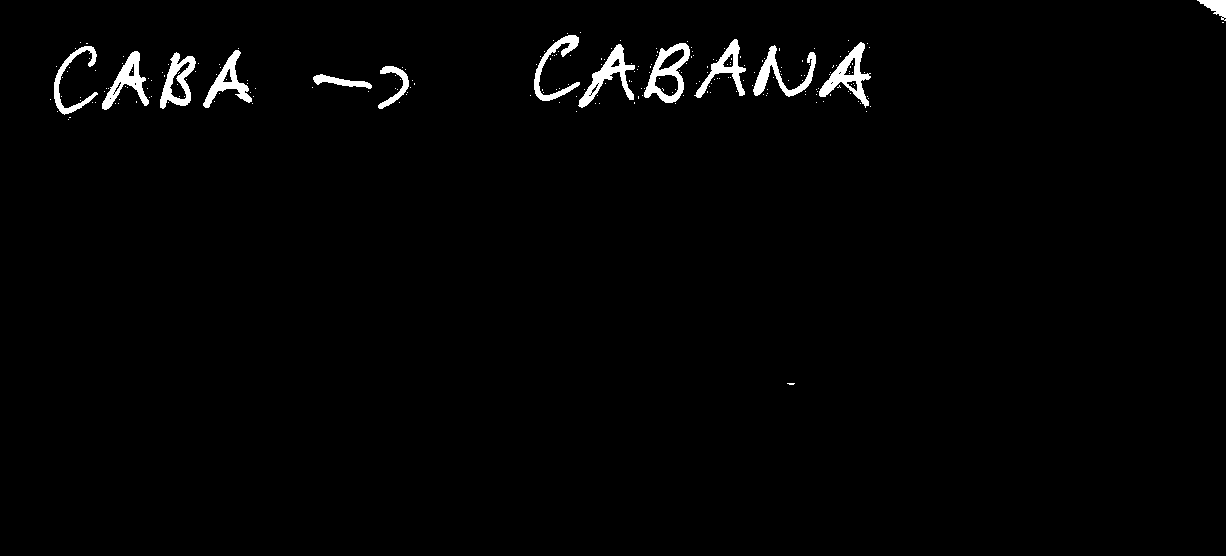 CABA → CABANA